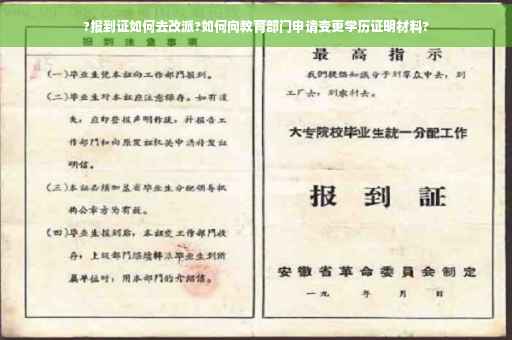 ?报到证如何去改派?如何向教育部门申请变更学历证明材料?
报到注意事项
(一)毕业生凭本证向工作部门报到。
(二)毕业生对本证应注意保存。如有遗
失,应即登报声明作废,并报告工
作部门和向原发证机关申请补发证
明信。
(三)本证必须加盖省毕业生分配领导机
构公章方为有效。
(四)毕业生报到后,本证交工作部门收
存;上级部门继续转派毕业生到所
属单位时,用本部门的介绍信。
最高指示
我们提倡知识分子到群众中去,到
工厂去,到农村去。
大专院校毕业生统一分配工作
报到证
安徽省革命委员会制定
一九 年 月 日